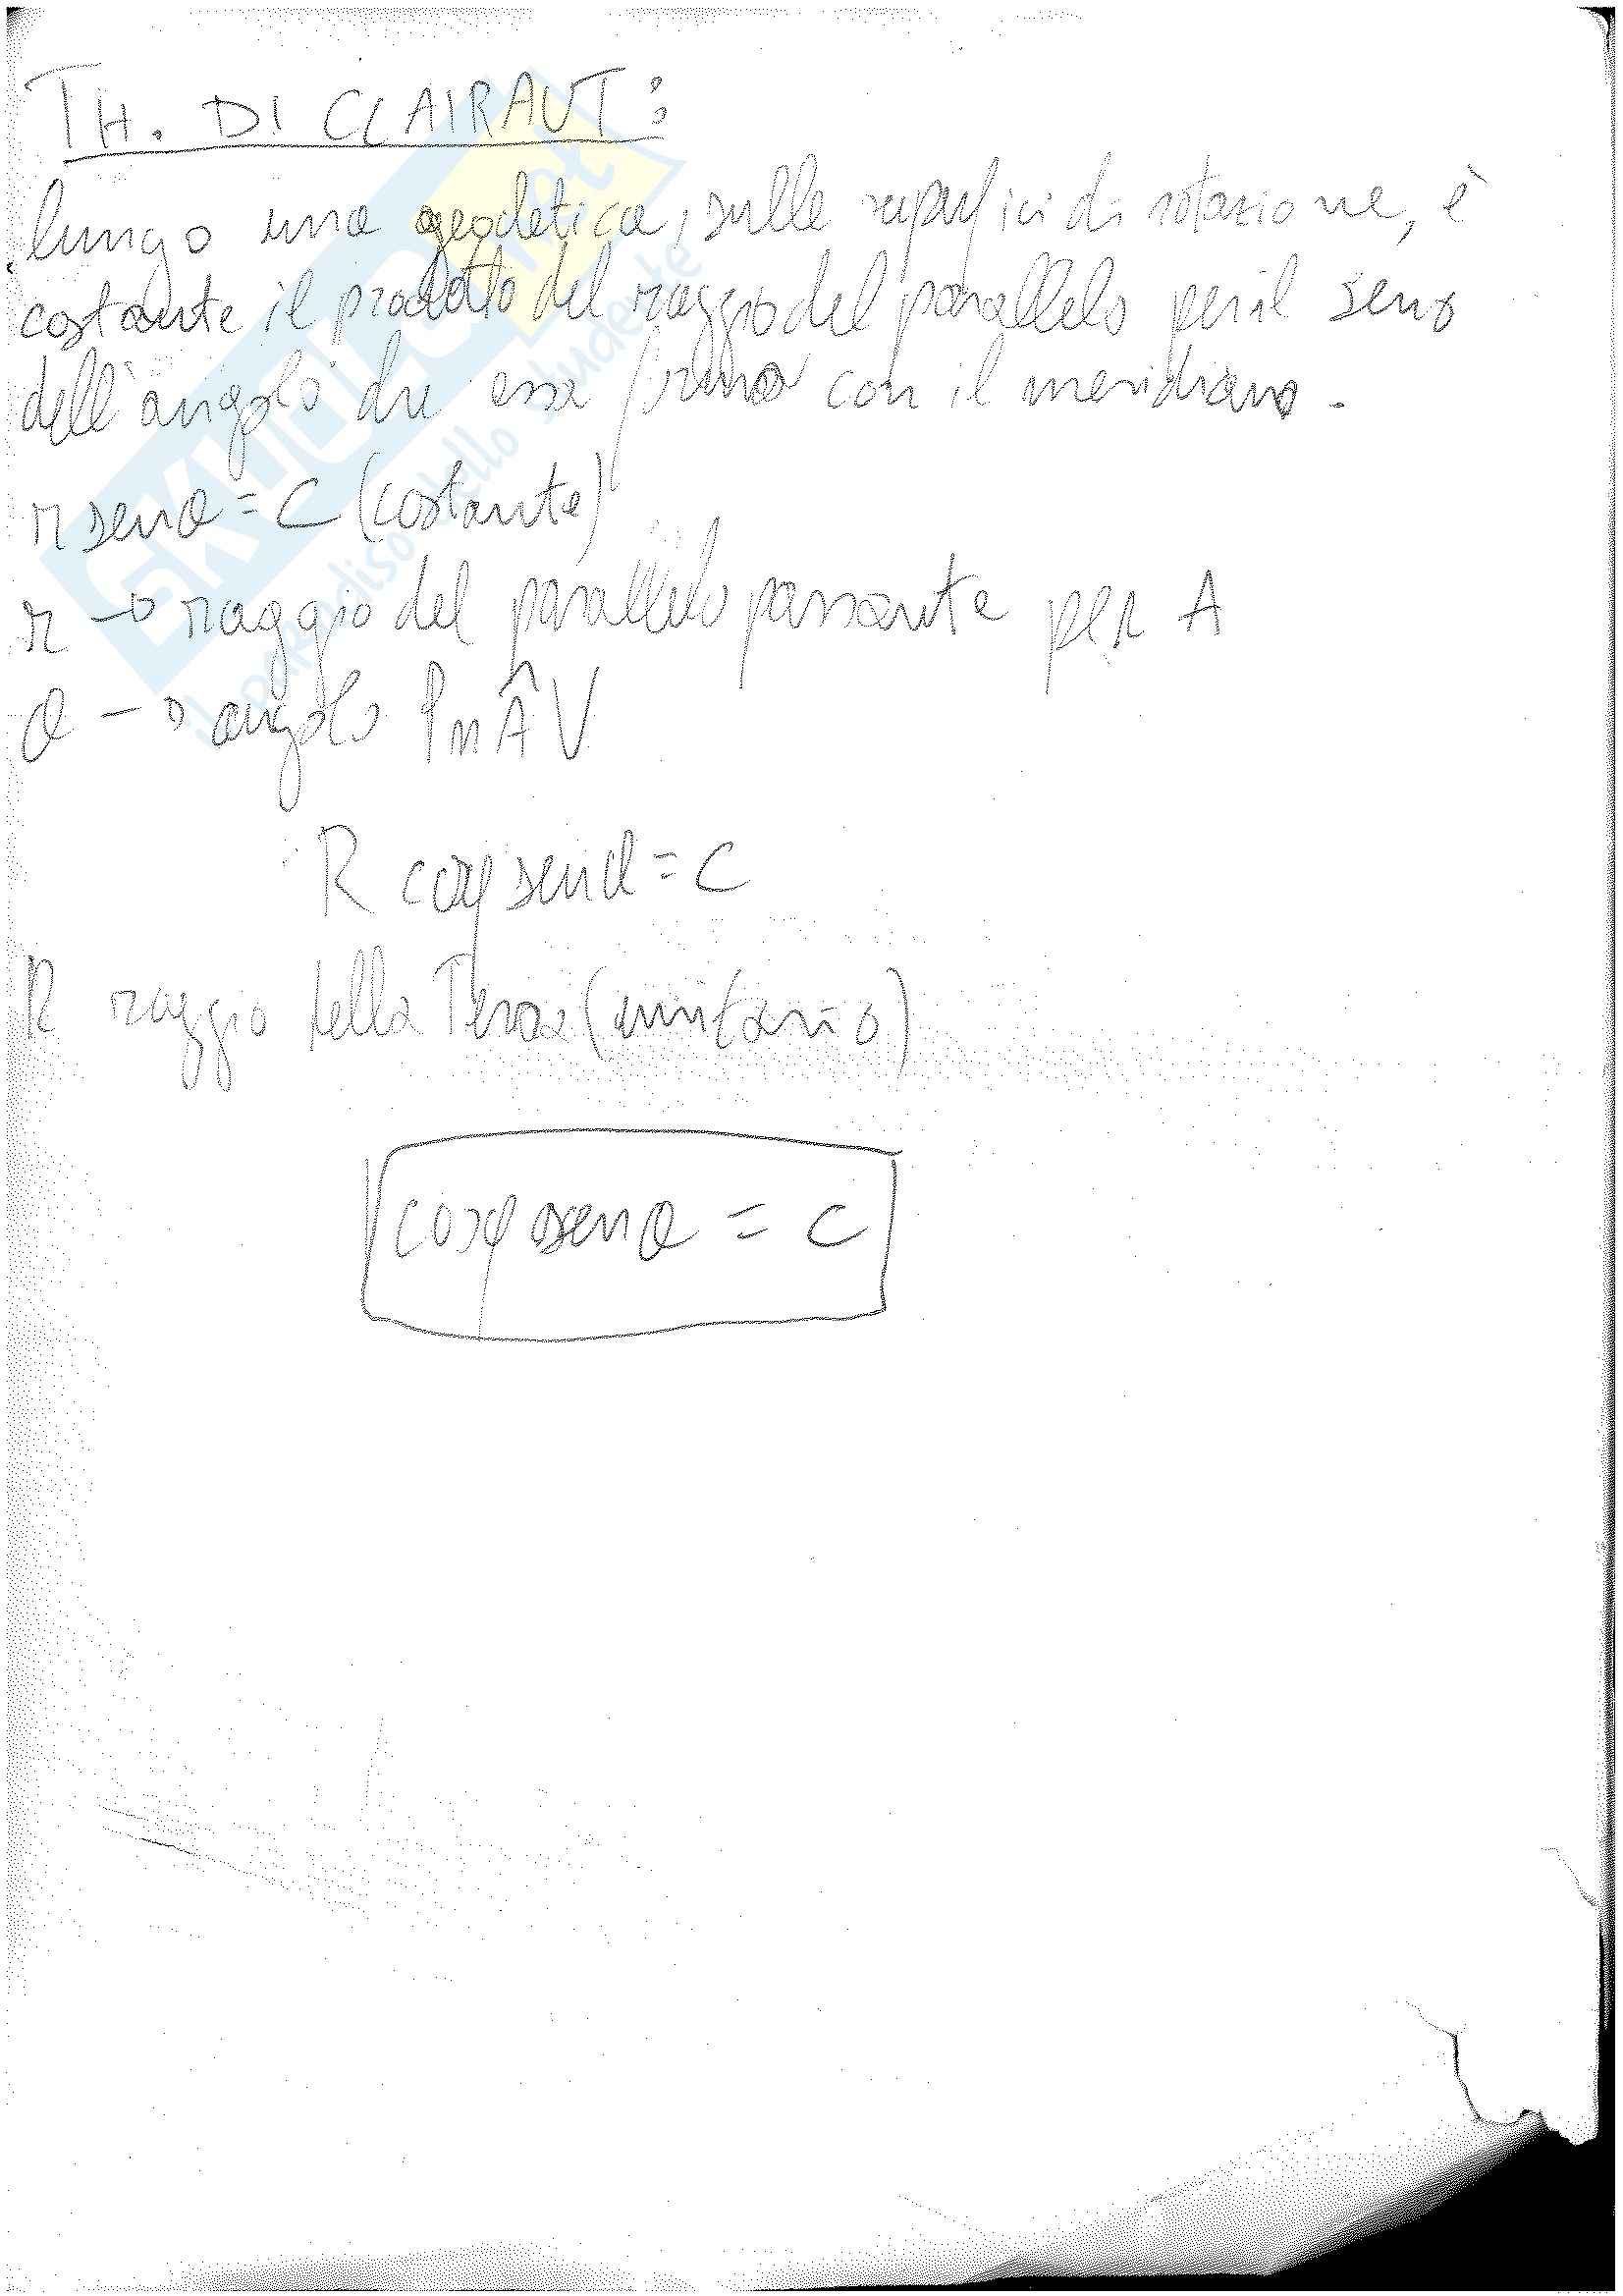 TH. DI CLAIRAUT:
lungo una geodetica, sulle superfici di rotazione, è
costante il prodotto del raggio del parallelo per il seno
dell'angolo che essa forma con il meridiano.
r sen α = C (costante)
r → raggio del parallelo passante per A
α → angolo PnÂV
R cosφ sen α = C
R raggio della Terra (unitario)
cosφ sen α = C
SKUOLA.net
il paradiso dello studente